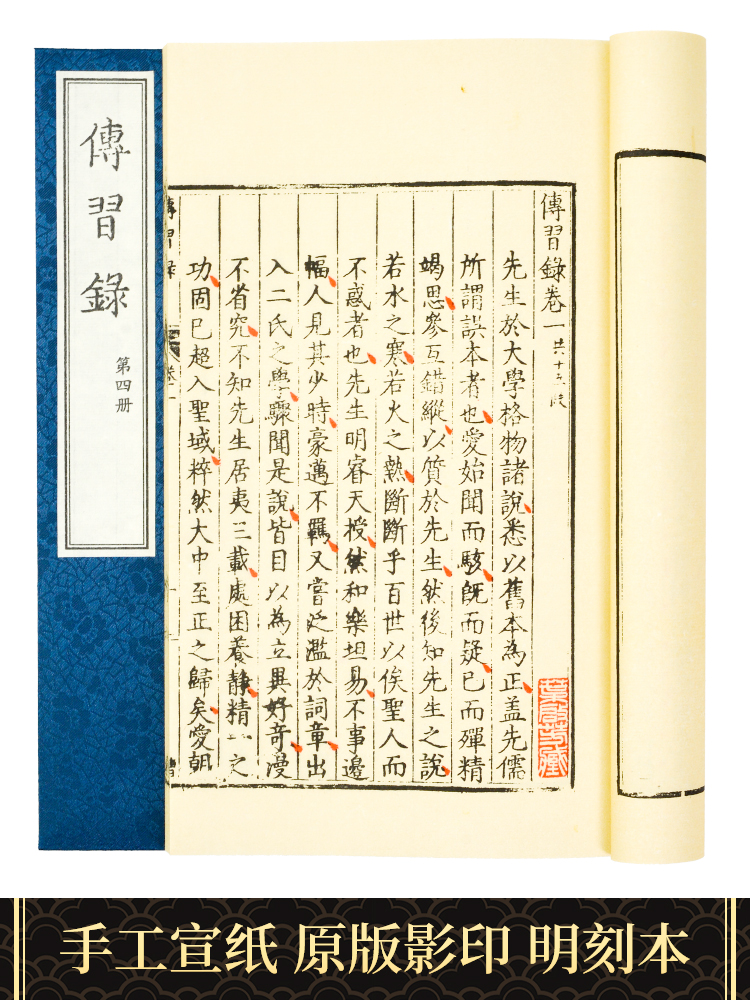 傳習錄
第四冊
傳習錄卷一 共十五段
先生於大學格物諸說悉以舊本為正盖先儒
所謂誤本者也愛始聞而駭既而疑已而殫精
竭思參互錯縱以質於先生然後知先生之說
若水之寒若火之熱斷斷乎百世以俟聖人而
不惑者也先生明睿天授然和樂坦易不事邊
幅人見其少時豪邁不羈又嘗泛濫於詞章出
入二氏之學驟聞是說皆目以為立異好奇漫
不省究不知先生居夷三載處困養靜精一之
功固已超入聖域粹然大中至正之歸矣愛朝
手工宣纸 原版影印 明刻本